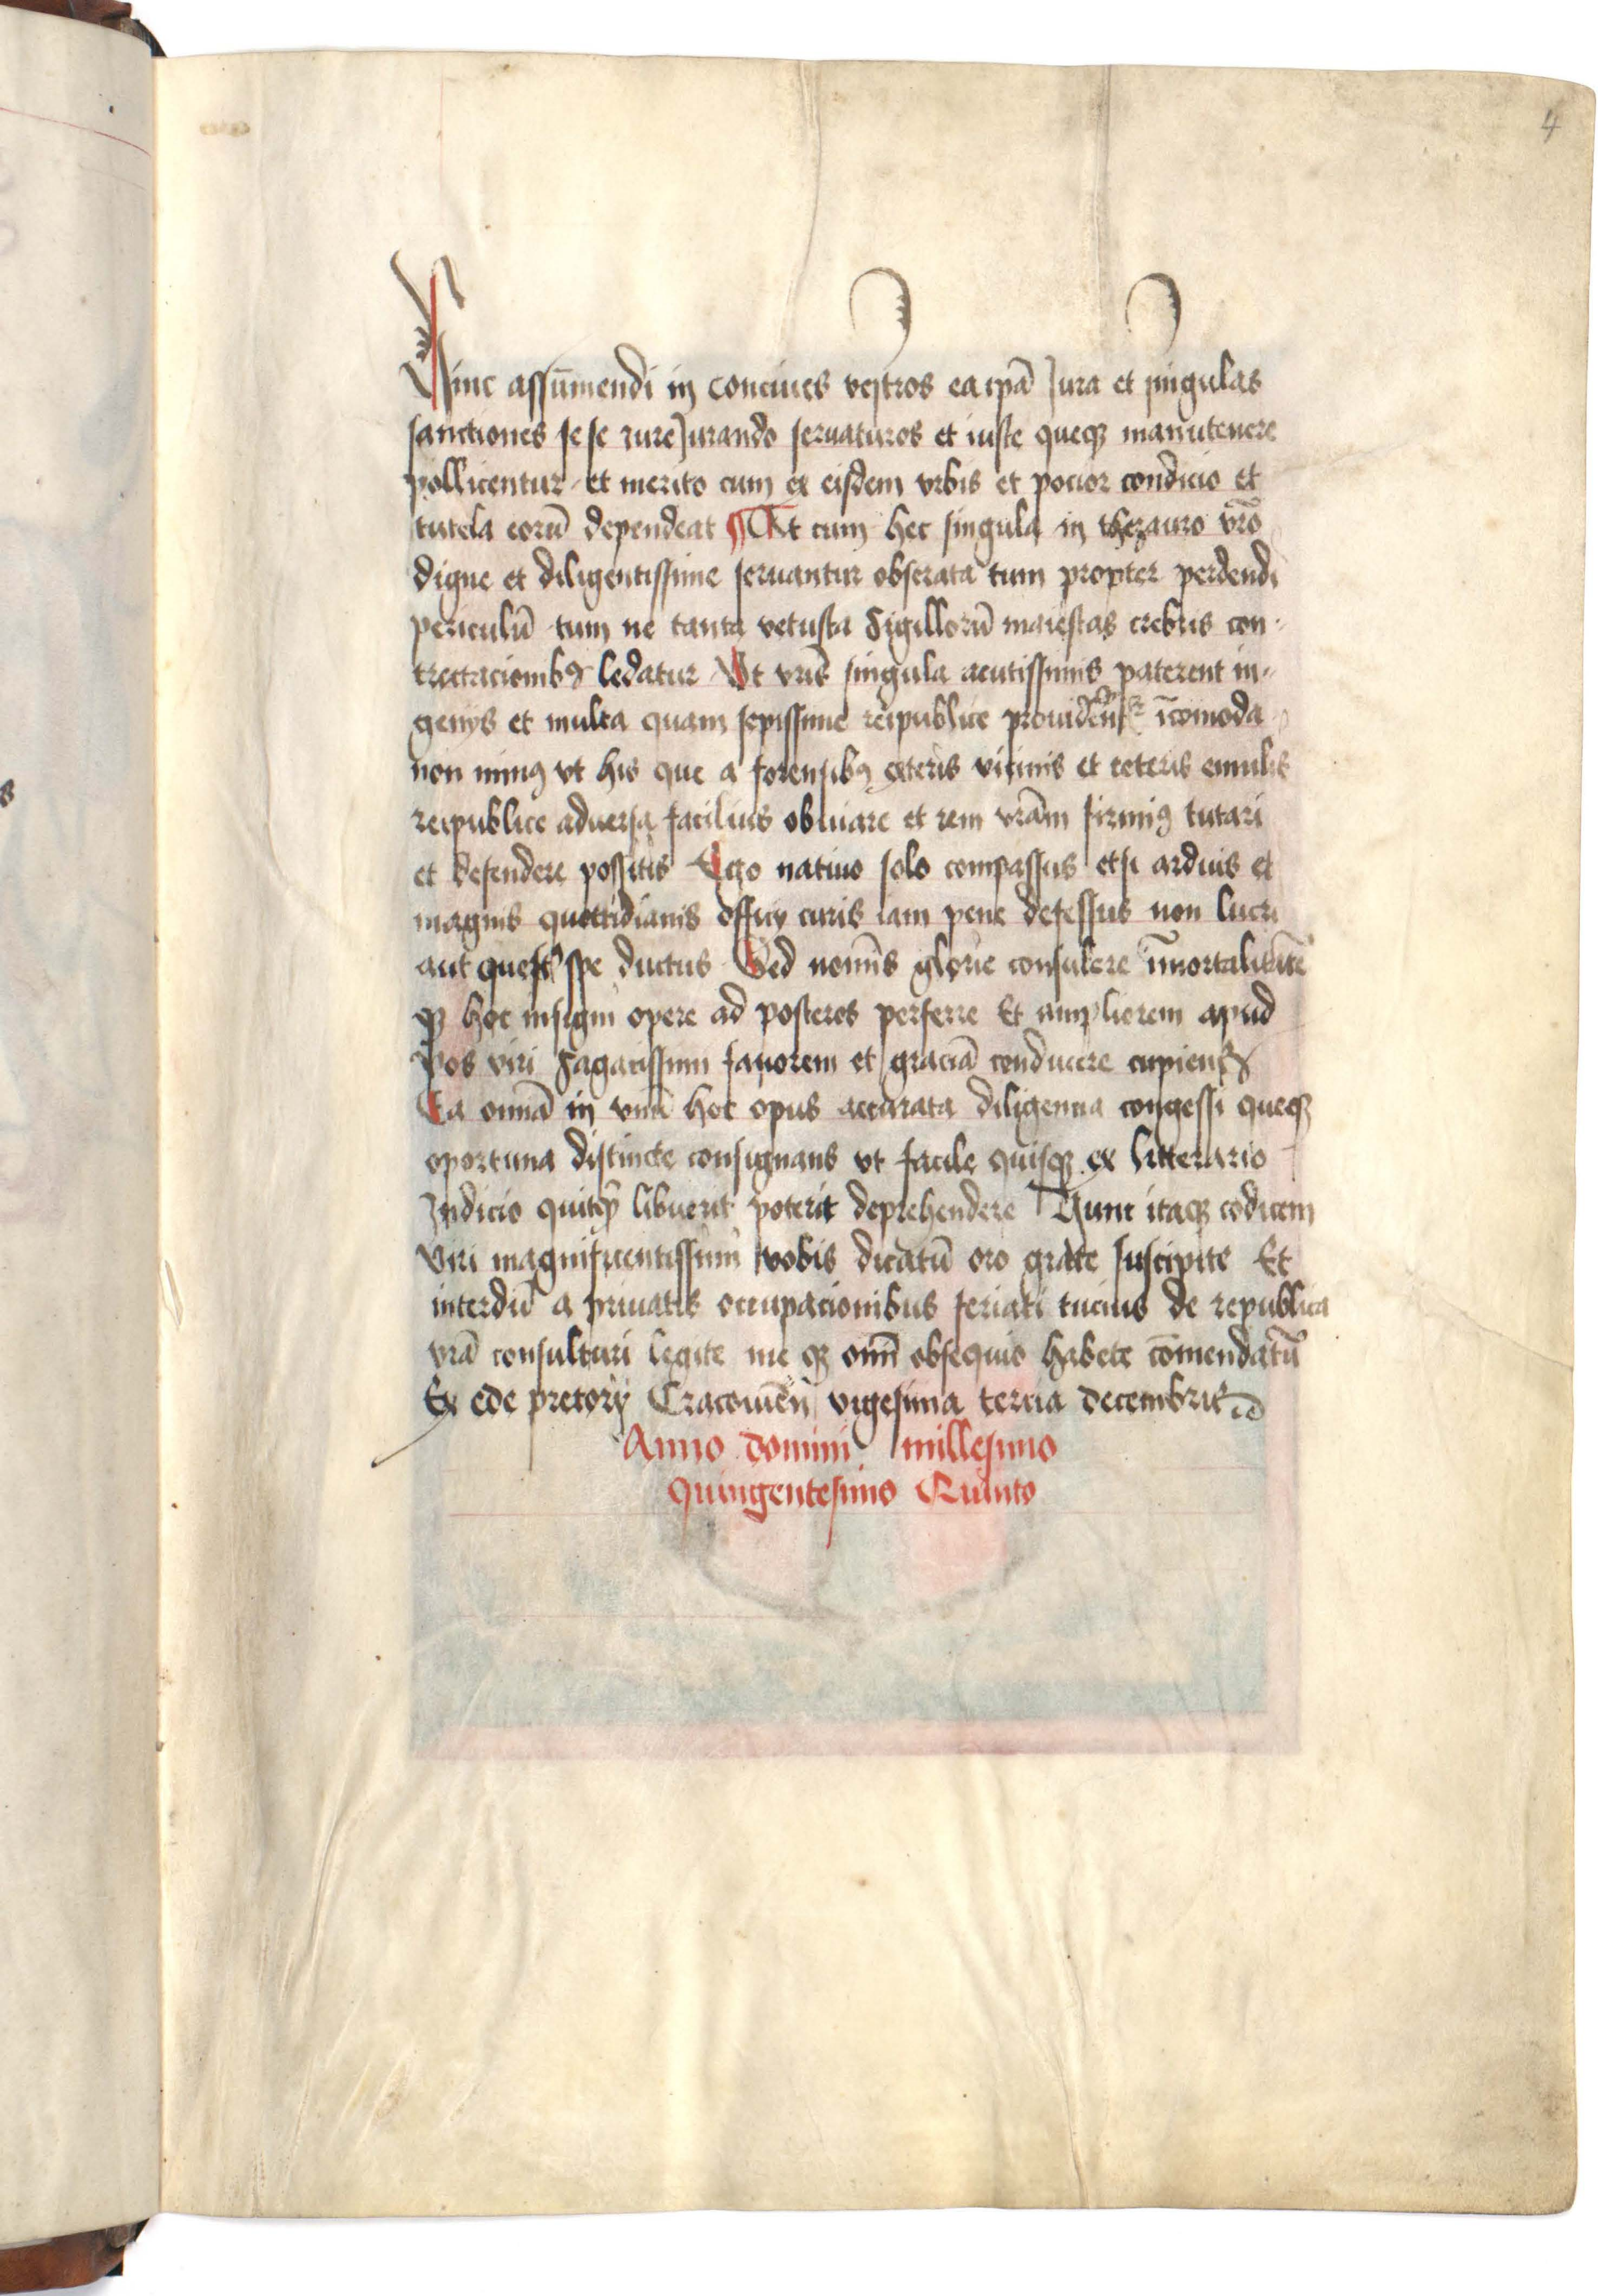 4
Hinc assūmendi in conciues vestros ea ipā Jura et singulas
sanctiones se se iureJurando seruaturos et iuste queqȝ manutenere
pollicentur et merito cum ex eisdem vrbis et pocior condicio et
tutela eorū dependeat ¶ At cum hec singula in thezauro vr̄o
digne et diligentissime seruantur obserata tum propter perdendi
periculū tum ne tanta vetusta sigillorū maiestas crebris con-
trectacionibꝰ ledatur Vt vr̄is singula acutissimis paterent in-
genijs et multa quam sepissime reipublice īcomoda
non minꝰ vt his que a forensibꝰ exteris vicinis et ceteris emulis
reipublice aduersa facilius obuiare et rem vrām firmiꝰ tutari
et defendere possitis Ego natiuo solo compassus etsi arduis et
magnis quottidianis officij curis iam pene defessus non lucri
aut questꝰ spe ductus Sed nomīs glorie consulere īmortalitatē
qȝ hoc insigni opere ad posteros perferre Et ampliorem apud
vos viri sagacissimi fauorem et graciā conducere cupiens
Ea omīa in vnū hoc opus accurata diligencia congessi queqȝ
oportuna distincte consignans vt facile quisqȝ ex litterario
Indicio quitqȝ libuerit poterit deprehendere Hunc itaqȝ codicem
viri magnificentissimi vobis dicatū oro grate suscipite Et
interdū a priuatis occupacionibus feriati tucius de republica
vrā consulturi legite me qȝ omī obsequio habete cōmendatū
Ex ede pretorij Cracouień vigesima tercia decembris
Anno domini millesimo
Quingentesimo Quinto